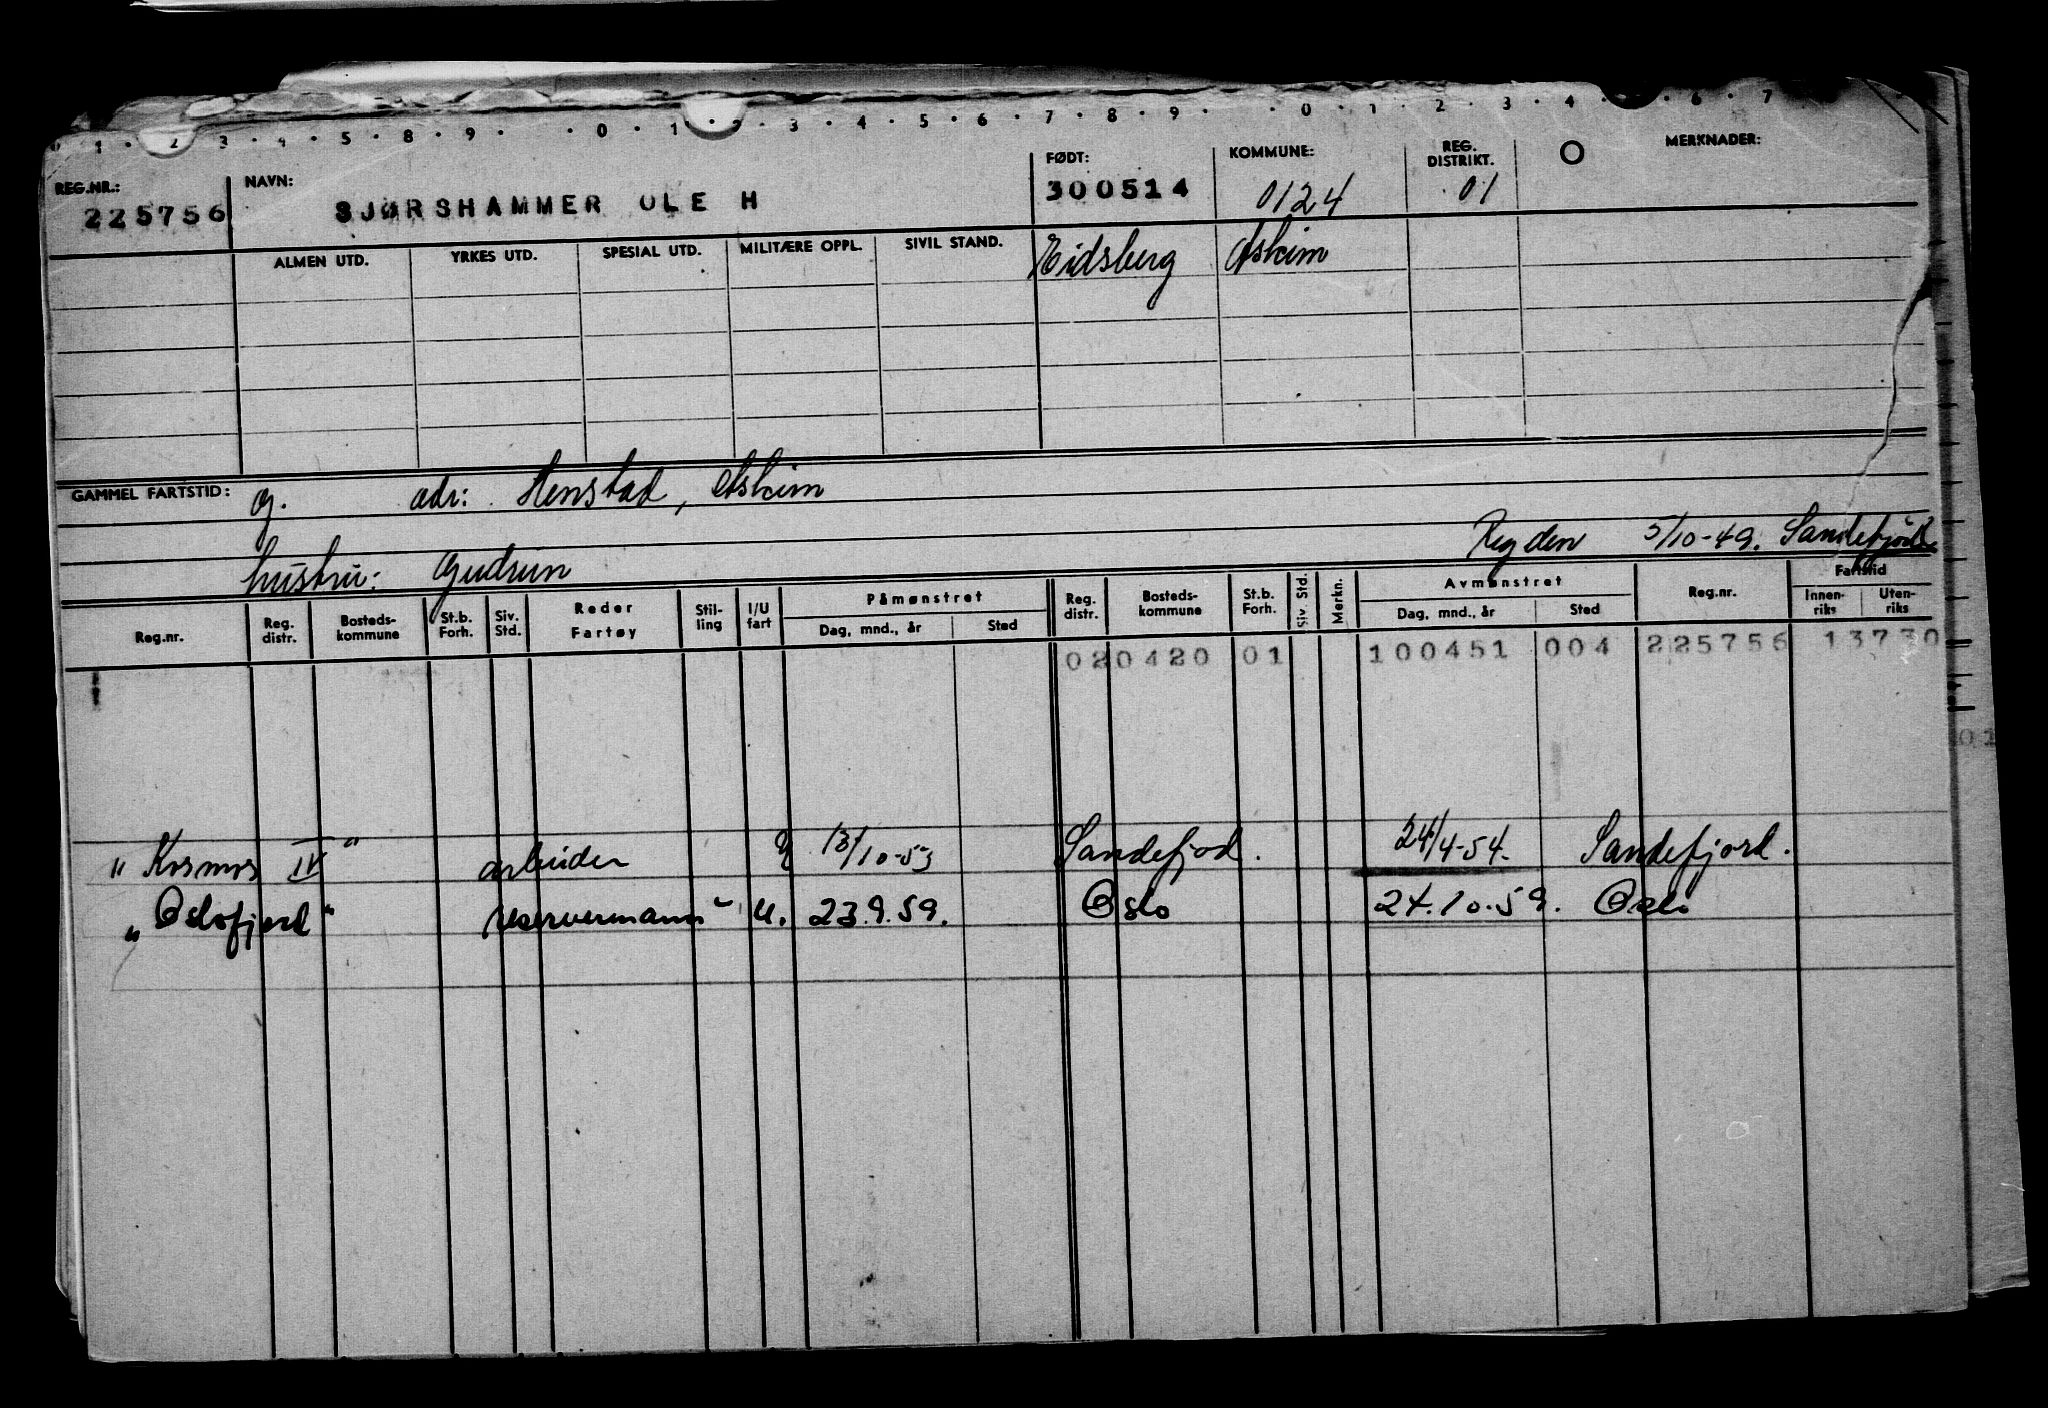 0 1 · 2 3 · 4 · 5 · 8 · 9 · · 0 · 1 · 2 · 3 · 4 · 5 · 6 · 7 · 8 · 9 · · 0 · 1 · 2 · 3 · 4 · 6 · 7
REG.NR.: NAVN: FØDT: KOMMUNE: REG. DISTRIKT. MERKNADER:
225756 SJØRSHAMMER OLE H 300514 0124 01
ALMEN UTD. YRKES UTD. SPESIAL UTD. MILITÆRE OPPL. SIVIL STAND. Eidsberg Askim
GAMMEL FARTSTID: g. adr: Henstad, Askim
Reg den 5/10-49. Sandefjord
hustru: Gudrun
Påmønstret Avmønstret Fartstid
Reg.nr. Reg. distr. Bosteds-kommune St.b. Forh. Siv. Std. Reder Fartøy Stil-ling I/U fart Dag, mnd., år Sted Reg. distr. Bosteds-kommune St.b. Forh. Siv. Std. Merkn. Dag, mnd., år Sted Reg.nr. Innen-riks Uten-riks
020420 01 100451 004 225756 13730
"Kosmos IV" arbeider 13/10-53 Sandefjod. 24/4-54. Sandefjord.
"Oslofjord" reservemann u. 23.9.59. Oslo 24.10.59. Oslo
01